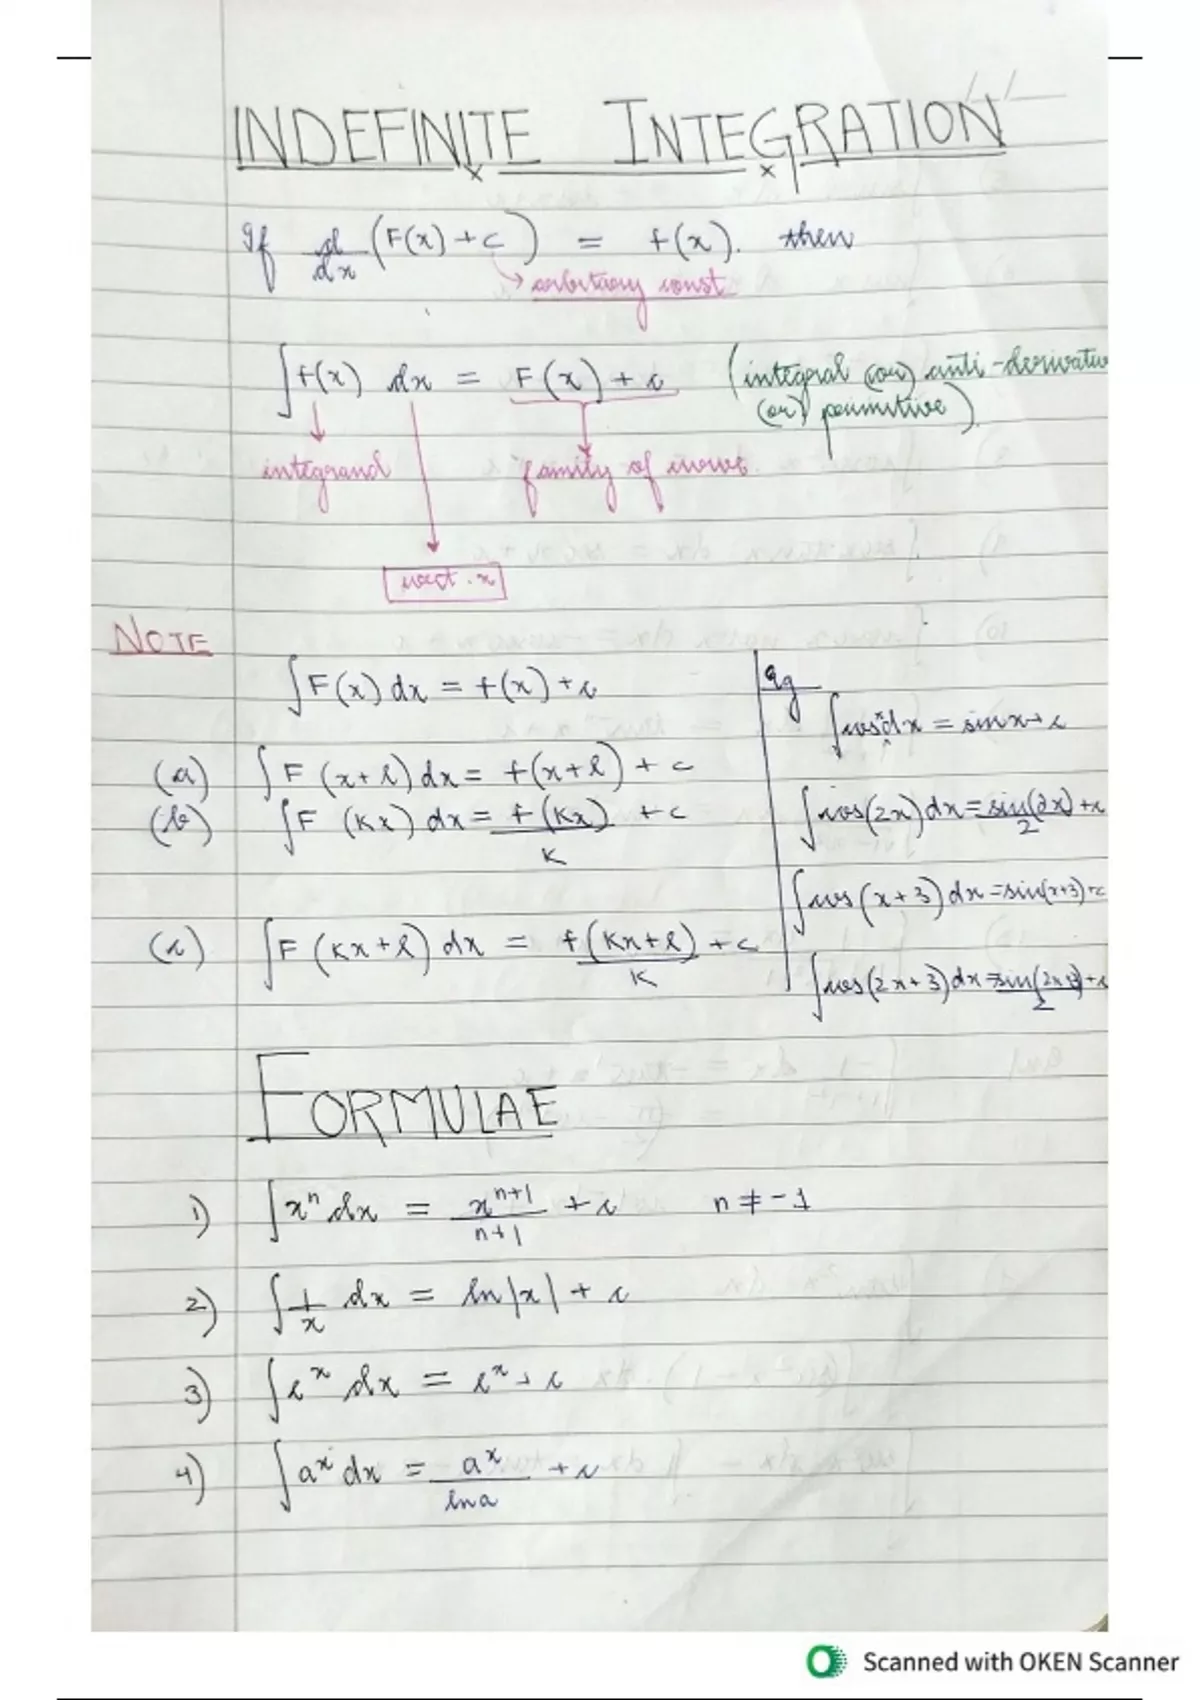 INDEFINITE INTEGRATION
If d/dx (F(x) + c) = f(x). then
→ arbitrary const
∫f(x) dx = F(x) + c (integral (or) anti-derivative
(or) primitive)
integrand family of curves.
w.r.t. x
NOTE
∫F(x) dx = f(x) + c
(a) ∫F (x+l) dx = f(x+l) + c
(b) ∫F (Kx) dx = f(Kx)/K + c
(c) ∫F (Kx+l) dx = f(Kx+l)/K + c
eg
∫cosx dx = sinx + c
∫cos(2x) dx = sin(2x)/2 + c
∫cos(x+3) dx = sin(x+3) + c
∫cos(2x+3) dx = sin(2x+3)/2 + c
FORMULAE
1) ∫xⁿ dx = xⁿ⁺¹/n+1 + c n ≠ -1
2) ∫1/x dx = ln|x| + c
3) ∫eˣ dx = eˣ + c
4) ∫aˣ dx = aˣ/lna + c
Scanned with OKEN Scanner